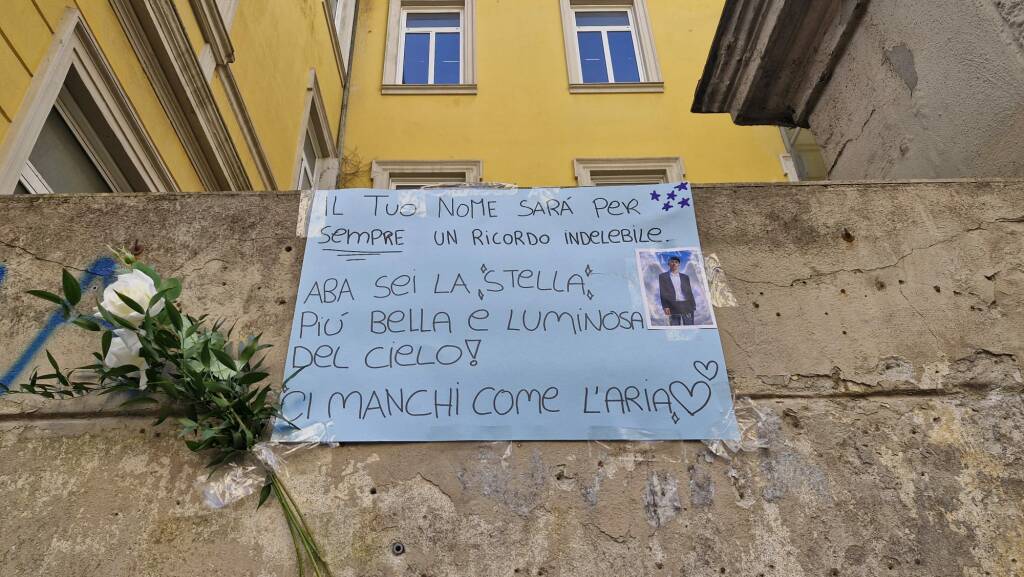 IL TUO NOME SARÁ PER
SEMPRE UN RICORDO INDELEBILE.
ABA SEI LA STELLA
PIÚ BELLA E LUMINOSA
DEL CIELO!
CI MANCHI COME L'ARIA